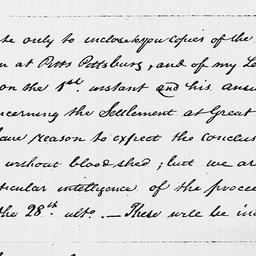 te only to inclose you copies of the
n at Pitts Pittsburg, and of my Le
on the 1st. instant and his answ
ncerning the Settlement at Great
have reason to expect the conclus
without bloodshed; but we are
ticular intelligence of the procee
the 28th. ulto. — These will be in